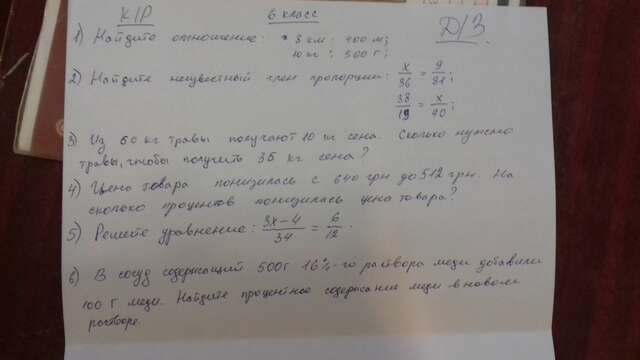 К/Р
6 класс
Д/З.
1) Найдите отношение: 8 км : 400 м;
10 кг : 500 г;
2) Найдите неизвестный член пропорции: x/36 = 9/81;
38/19 = x/90;
3) Из 60 кг травы получают 10 кг сена. Сколько нужно
травы, чтобы получить 35 кг сена?
4) Цена товара понизилась с 640 грн до 512 грн. На
сколько процентов понизилась цена товара?
5) Решете уравнение: 3x-4/34 = 6/12.
6) В сосуд содержащий 500г 16%-го раствора меди добавили
100 г меди. Найдите процентное содержание меди в новом
растворе.